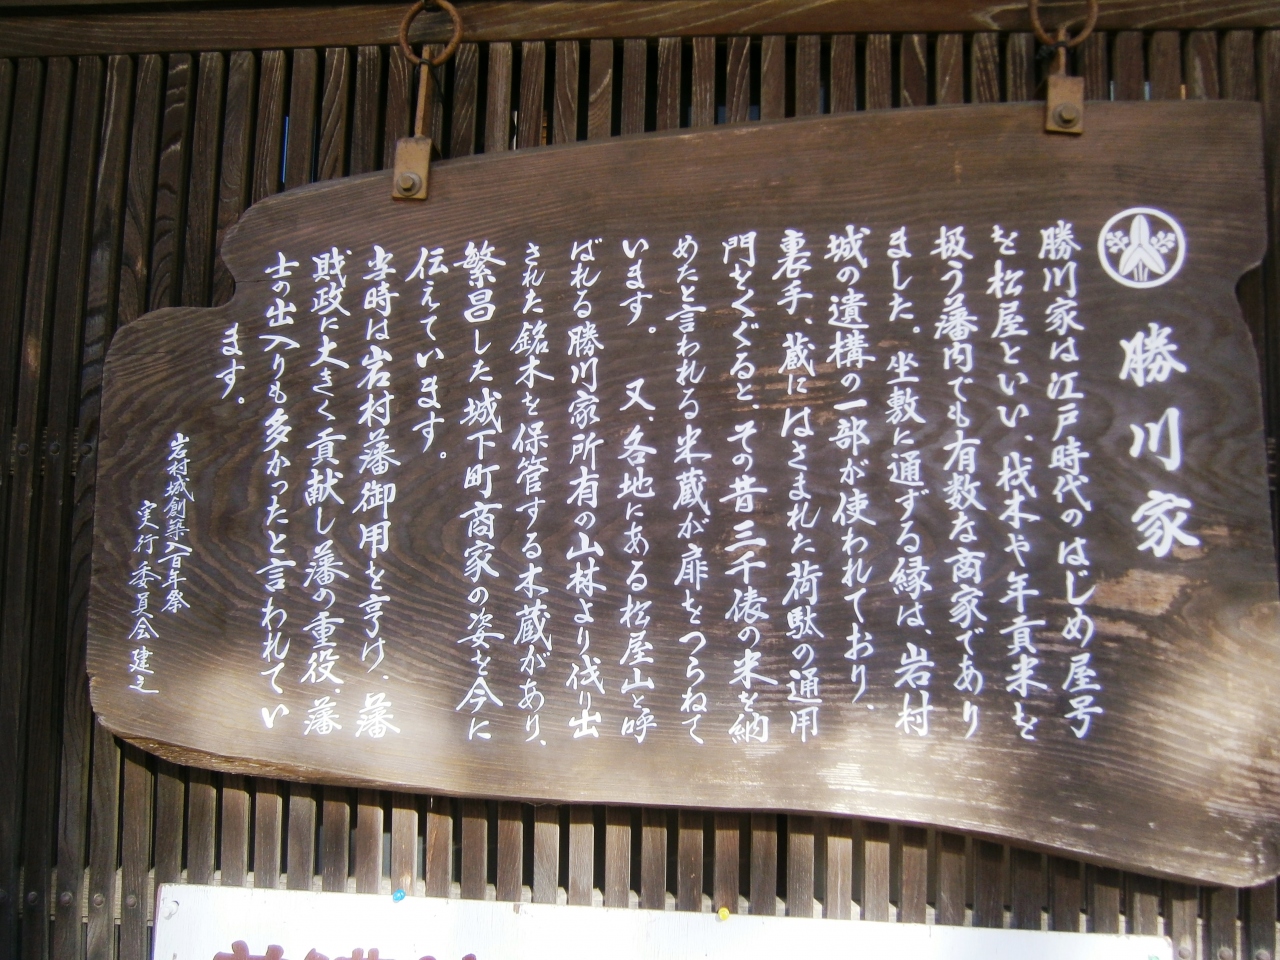 勝川家
勝川家は江戸時代のはじめ屋号
を松屋といい、材木や年貢米を
扱う藩内でも有数な商家であり
ました。坐敷に通ずる縁は、岩村
城の遺構の一部が使われており、
裏手、蔵にはさまれた荷駄の通用
門をくぐると、その昔三千俵の米を納
めたと言われる米蔵が扉をつらねて
います。又、各地にある松屋山と呼
ばれる勝川家所有の山林より伐り出
された銘木を保管する木蔵があり、
繁昌した城下町商家の姿を今に
伝えています。
当時は岩村藩御用を亨け、藩
財政に大きく貢献し藩の重役、藩
士の出入りも多かったと言われてい
ます。
岩村城創築八百年祭
実行委員会建之